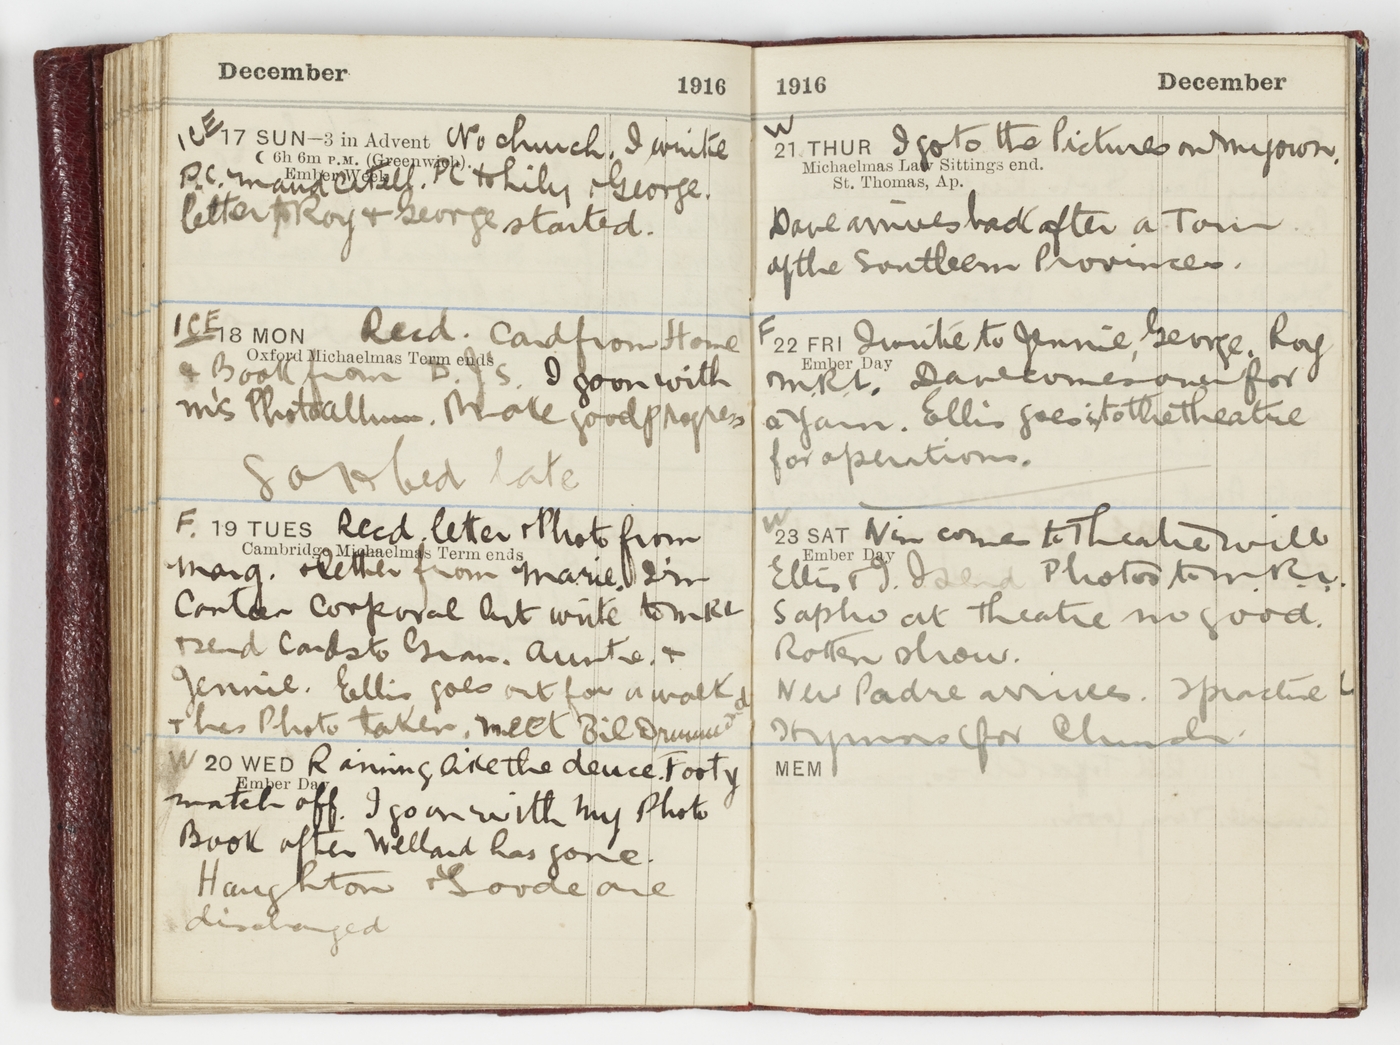 December 1916
ICE 17 SUN—3 in Advent No church. I write
☾ 6h 6m P.M. (Greenwich).
Ember Week
P.C. Maud & Nell. PC to Lily & George.
letter to Roy & George started.
ICE 18 MON Recd. Card from Home
Oxford Michaelmas Term ends
& Book from B.J.S. I go on with
M's Photo album. Make good progress
Go to bed late
F. 19 TUES Recd. letter & Photo from
Cambridge Michaelmas Term ends
Marg. & letter from Marie. I'm
Canteen Corporal but write to MRL
& send Cards to Gran. Auntie. &
Jennie. Ellis goes out for a walk
& has Photo taken, meet Bil Drummond
W 20 WED Raining like the deuce. Footy
Ember Day
match off. I go on with my Photo
Book after Wellard has gone.
Haughton & Goode are
discharged
1916 December
W 21 THUR I go to the Pictures on my own.
Michaelmas Law Sittings end.
St. Thomas, Ap.
Dave arrives back after a Tour
of the Southern Provinces.
F 22 FRI I write to Jennie, George. Roy
Ember Day
MRL. Dave comes over for
a yarn. Ellis goes to the theatre
for operations.
W 23 SAT Nin comes to Theatre with
Ember Day
Ellis & I. I send Photos to MRL.
Sapho at Theatre no good.
Rotten show.
New Padre arrives. I practise
Hymns for Church.
MEM